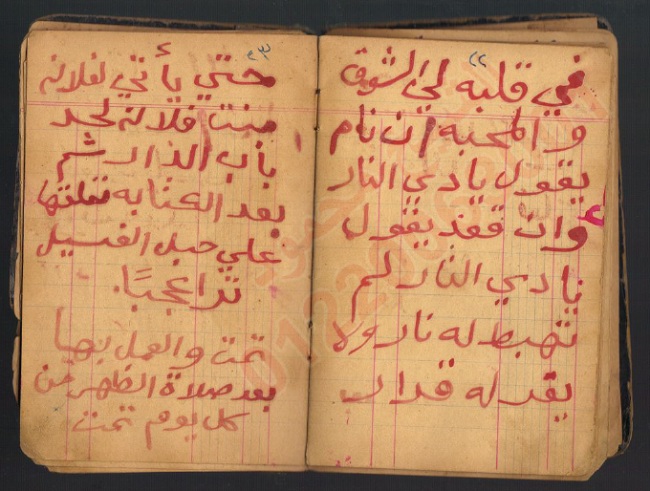 ٢٢
في قلبه لي الشوق
والمحبه إن نام
يقول يا دي النار
وان قعد يقول
يا دي النار لم
تهبط له نار ولا
يقر له قرار
٢٣
حتي يأتي لفلانه
بنت فلانة لحد
باب الدار ثم
بعد الكتابه تتلتها
علي حبل الغسيل
ترا عجبًا.
تمت والعمل بها
بعد صلاة الظهر من
كل يوم تمت